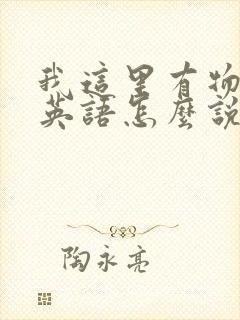 我這里有物
英語怎麼說
陶永亮